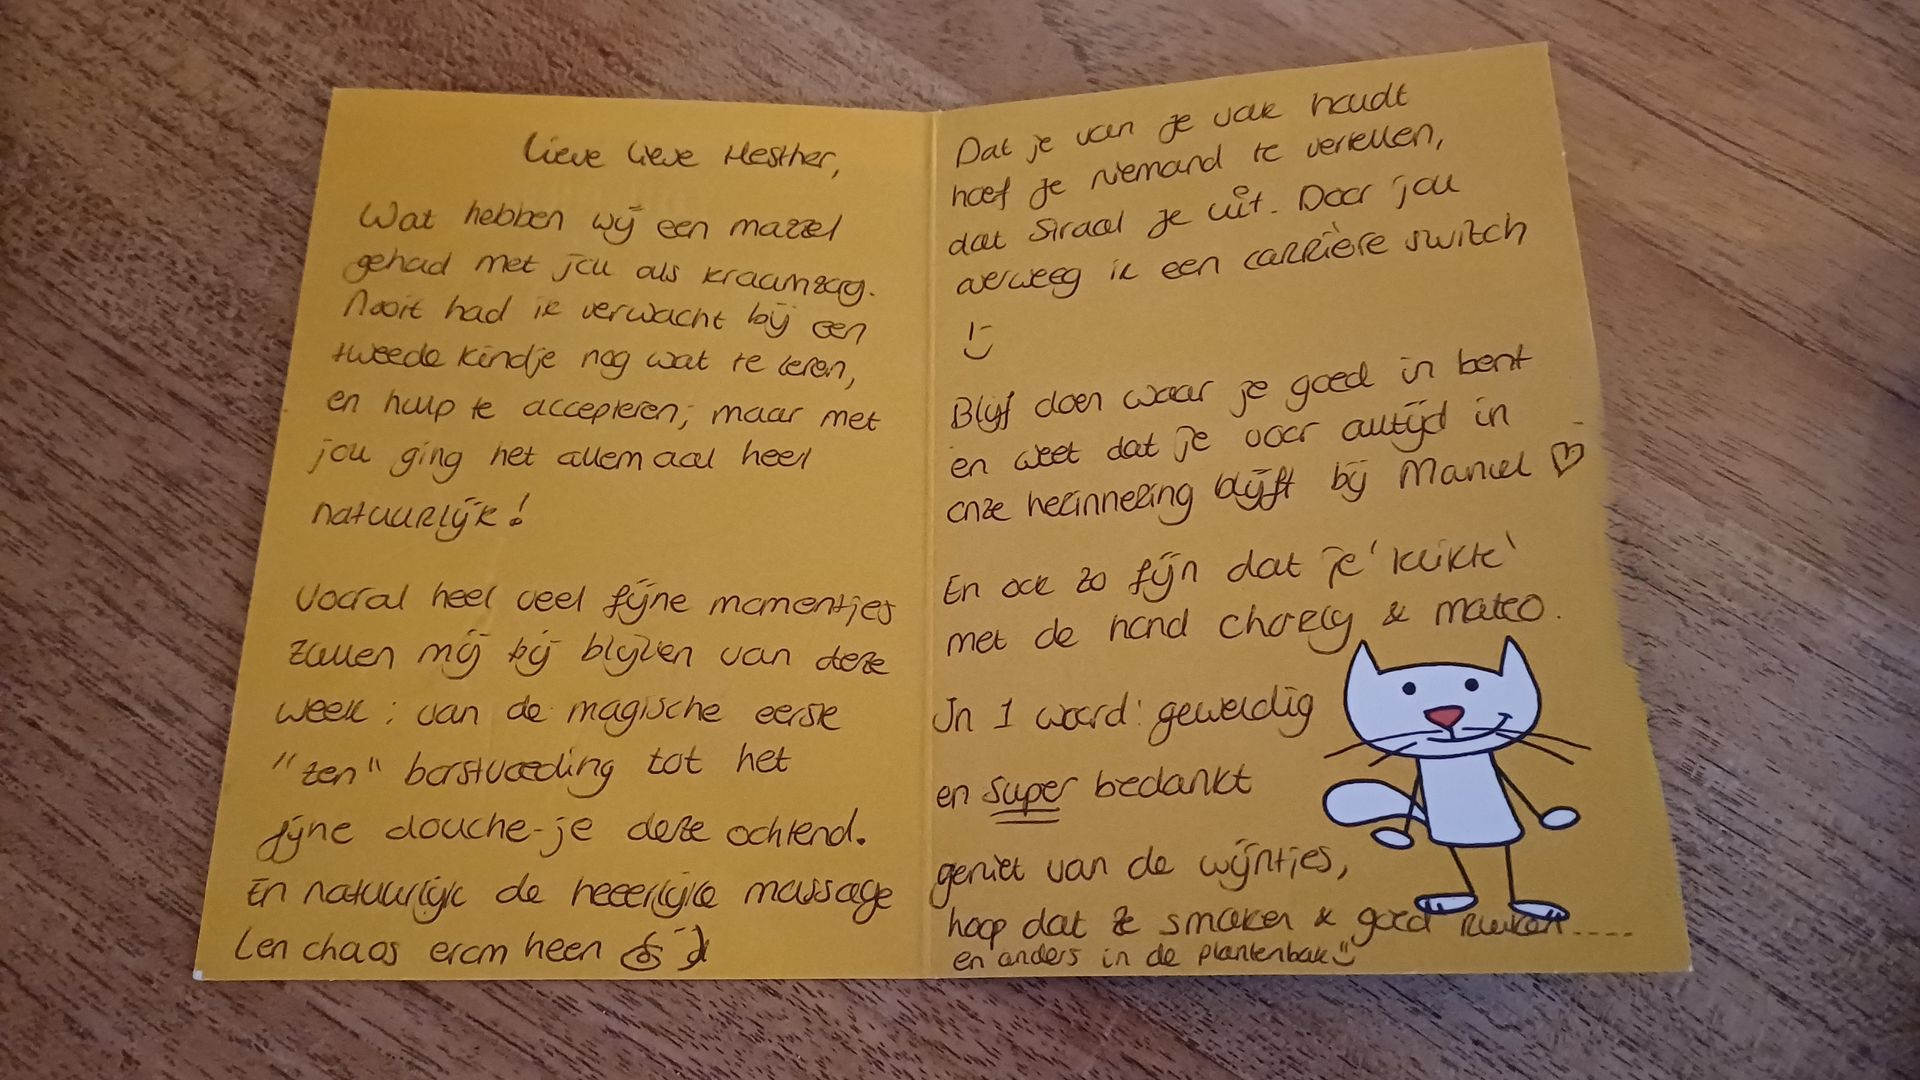 Lieve lieve Hesther,
Wat hebben wij een mazzel
gehad met jou als kraamzorg.
Nooit had ik verwacht bij een
tweede kindje nog wat te leren,
en hulp te accepteren; maar met
jou ging het allemaal heel
natuurlijk!
Vooral heel veel fijne momentjes
zullen mij bij blijven van deze
week: van de magische eerste
"zen" borstvoeding tot het
fijne douche-je deze ochtend.
En natuurlijk de heeerlijke massage
(en chaos erom heen
Dat je van je vak houdt
hoef je niemand te vertellen,
dat straal je uit. Door jou
overweeg ik een carrière switch
Blijf doen waar je goed in bent
en weet dat je voor altijd in
onze herinnering blijft bij Manuel ♡
En ook zo fijn dat je 'klikte'
met de hond & mateo.
In 1 woord: geweldig
en super bedankt
geniet van de wijntjes,
hoop dat ze smaken & goed ruiken....
en anders in de plantenbak